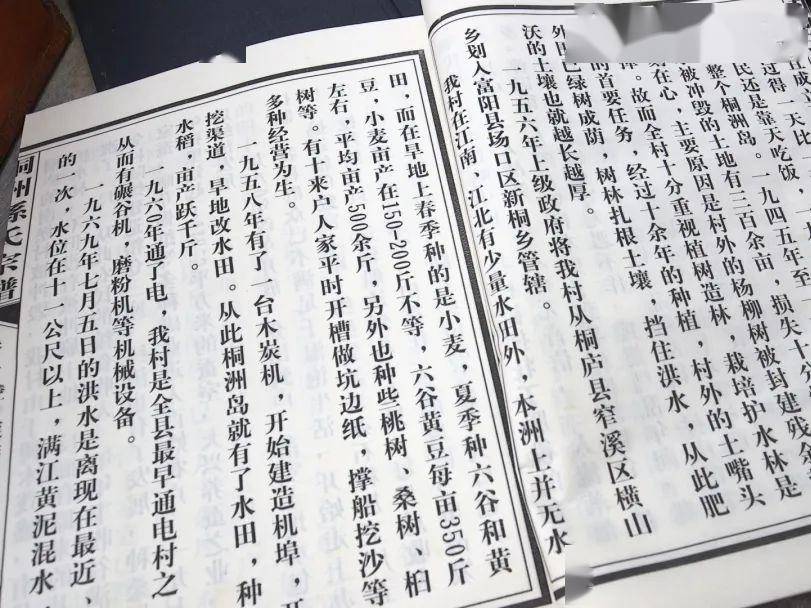 过得一天比
民还是靠天吃饭，
整个桐洲岛。一九四五年至
被冲毁的土地有三百余亩，损失十
在心，主要原因是村外的杨柳树被封建残余
故而全村十分重视植树造林，栽培护水林是
的首要任务，经过十余年的种植，村外的土嘴头
外田已绿树成荫，树林扎根土壤，挡住洪水，从此肥
沃的土壤也就越长越厚。
一九五六年上级政府将我村从桐庐县窄溪区横山
乡划入富阳县场口区新桐乡管辖。
我村在江南、江北有少量水田外，本洲上并无水
田，而在旱地上春季种的是小麦，夏季种六谷和黄
豆，小麦亩产在150-200斤不等，六谷黄豆每亩350斤
左右，平均亩产500余斤，另外也种些桃树、桑树、柏
树等。有十来户人家平时开槽做坑边纸，撑船挖沙等
多种经营为生。
一九五八年有了一台木炭机，开始建造机埠，开
挖渠道，旱地改水田。从此桐洲岛就有了水田，种
水稻，亩产跃千斤。
一九六0年通了电，我村是全县最早通电村之
从而有碾谷机、磨粉机等机械设备。
一九六九年七月五日的洪水是离现在最近、
的一次，水位在十一公尺以上，满江黄泥混水，
桐洲孫氏宗譜